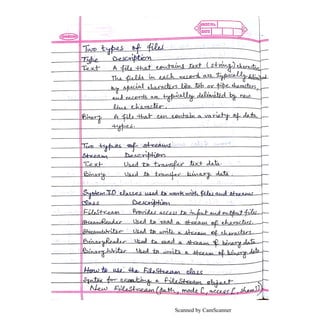 PAGE NO.
DATE
Two types of files
Type Description
Text A file that contains text (string) characters.
The fields in each record are typically delimited
by special characters like tab or pipe characters,
and records are typically delimited by new
line character.
Binary A file that can contain a variety of data
types.
Two types of streams
Stream Description
Text Used to transfer text data
Binary Used to transfer binary data
System IO classes used to work with files and streams
Class Description
FileStream Provides access to input and output files.
StreamReader Used to read a stream of characters.
StreamWriter Used to write a stream of characters.
BinaryReader Used to read a stream of binary data
BinaryWriter Used to write a stream of binary data
How to use the FileStream class
Syntax for creating a FileStream object
New FileStream(path, mode[, access[, share]])
Scanned by CamScanner